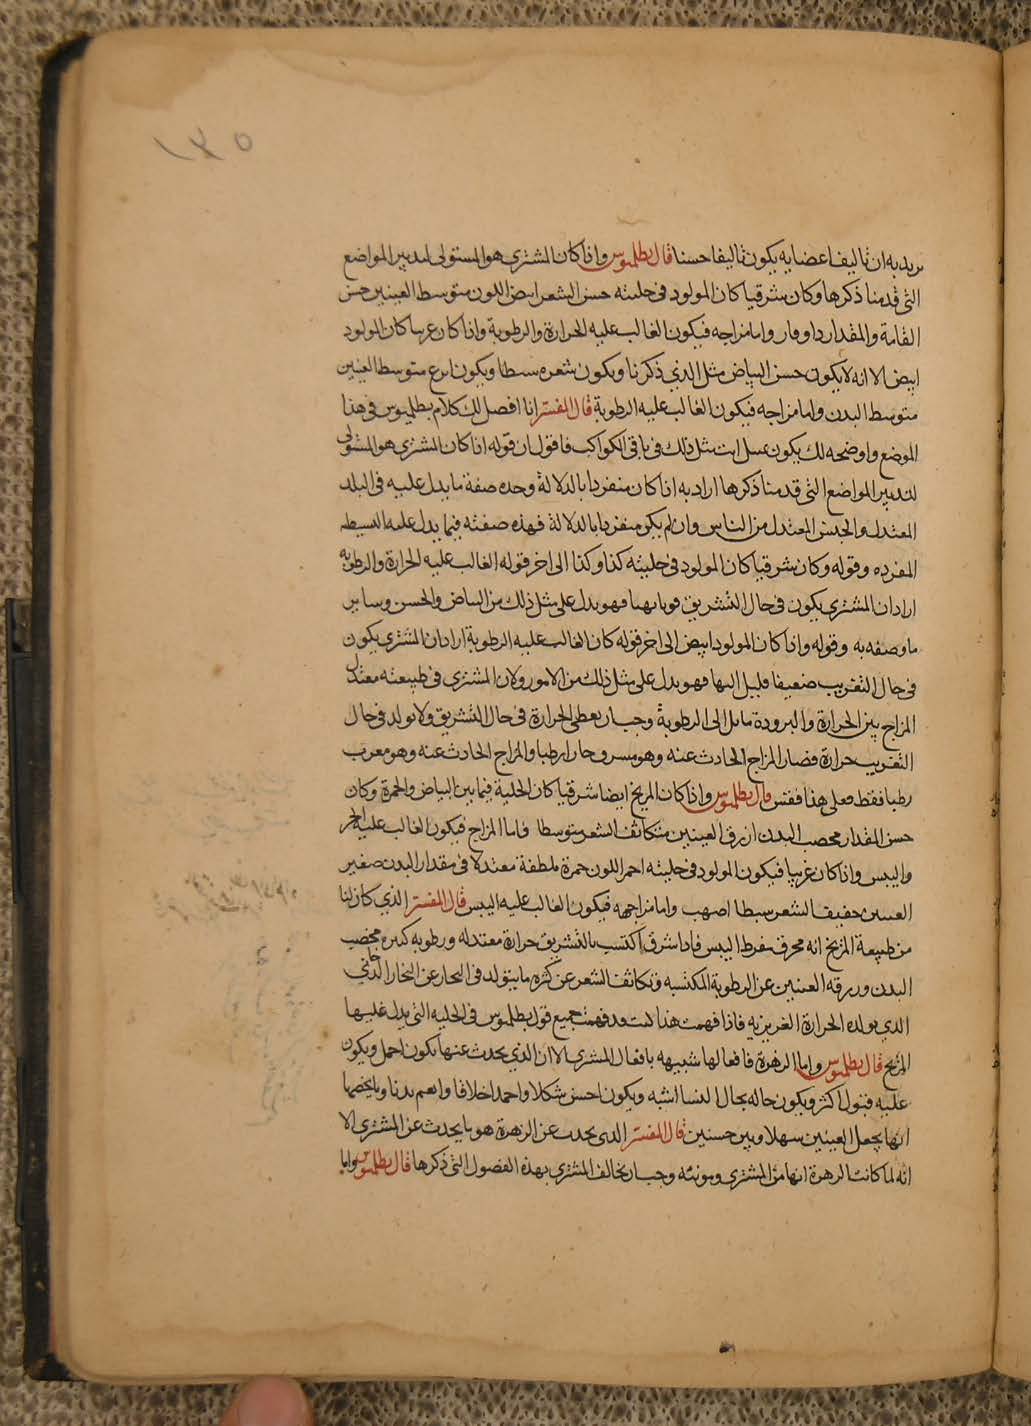 يريد به ان تاليف اعضايه يكون تاليفا حسنا قال بطلميوس واذا كان المشتري هو المستولي لتدبير المواضع
التي قدمنا ذكرها وكان شرقيا كان المولود في حليته حسن الشعر ابيض اللون متوسط العينين حسن
القامة والمقدار ذا وقار واما مزاجه فيكون الغالب عليه الحرارة والرطوبة واذا كان غربيا كان المولود
ابيض الا انه لا يكون حسن البياض مثل الذي ذكرنا ويكون شعره سبطا ويكون انزع متوسط العينين
متوسط البدن واما مزاجه فيكون الغالب عليه الرطوبة قال المفسر انا افصل لك كلام بطلميوس في هذا
الموضع واوضحه لك يكون مثل ذلك في باقي الكواكب فاقول ان قوله اذا كان المشتري هو المستولي
لتدبير المواضع التي قدمنا ذكرها اراد به اذا كان منفردا بالدلالة وحده صفة ما يدل عليه في البلد
المعتدل والجنس المعتدل من الناس وان لم يكن منفردا بالدلالة فهذه صفته فيما يدل عليه البسيطه
المفرده وقوله وكان شرقيا كان المولود في حليته كذا وكذا الى اخر قوله الغالب عليه الحرارة والرطوبه
اراد ان المشتري يكون في حال التشريق قويا بهيا فهو يدل على مثل ذلك من البياض والحسن وساير
ما وصفه به وقوله واذا كان المولود ابيض الى اخر قوله كان الغالب عليه الرطوبة اراد ان المشتري يكون
في حال التغريب ضعيفا قليل البها فهو يدل على مثل ذلك من الامور ولان المشتري في طبيعته معتدل
المزاج بين الحرارة والبرودة مايل الى الرطوبة وجب ان يعطي الحرارة في حال التشريق ولا يولد في حال
التغريب حرارة فصار المزاج الحادث عنه وهو مشرق حارا رطبا والمزاج الحادث عنه وهو مغرب
رطبا فقط فعلى هذا فقس قال بطلميوس واذا كان المريخ ايضا شرقيا كان الحلية فيما بين البياض والحمرة وكان
حسن المقدار مخصب البدن ازرق العينين متكاثف الشعر متوسطا فاما المزاج فيكون الغالب عليه الحر
واليبس واذا كان غربيا فيكون المولود في حليته احمر اللون حمرة ملطفة معتدلا في مقدار البدن صغير
العينين خفيف الشعر سبطا اصهب واما مزاجه فيكون الغالب عليه اليبس قال المفسر الذي كان لنا
من طبيعة المريخ انه محرق مفرط اليبس فاذا شرق اكتسب بالتشريق حرارة معتدله ورطوبه كثيره فخصب
البدن وزرقه العينين عن الرطوبة المكتسبه وتكاثف الشعر عن كثره ما يتولد في البخار عن البخار الدخاني
الذي يولده الحرارة الغريزيه فاذا فهمت هذا كنت قد فهمت جميع قول بطلميوس في الحليه التي يدل عليها
المريخ قال بطلميوس واما الزهرة فافعالها شبيهه بافعال المشتري الا ان الذي يحدث عنها يكون اجمل ويكون
عليه قبول اكثر ويكون حاله بحال النسا اشبه ويكون احسن شكلا واحمد اخلاقا وانعم بدنا وما يخصها
انها يجعل العينين سهلاوين حسنين قال المفسر الذي يحدث عن الزهرة هو ما يحدث عن المشتري الا
انه لما كانت الزهرة ابها من المشتري ومونثه وجب ان يخالف المشتري بهذه الفصول التي ذكرها قال بطلميوس واما